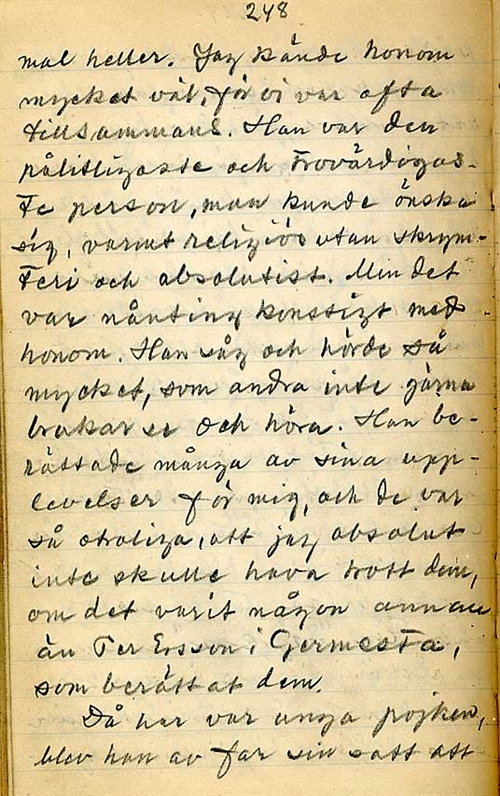 248
mal heller. Jag kände honom
mycket väl, för vi var ofta
tillsammans. Han var den
pålitligaste och trovärdigas-
te person, man kunde önska
sig, varmt religiös utan skrym-
teri och absolutist. Men det
var nånting konstigt med
honom. Han såg och hörde så
mycket, som andra inte gärna
brukar se och höra. Han be-
rättade många av sina upp-
levelser för mig, och de var
så otroliga, att jag absolut
inte skulle hava trott dem,
om det varit någon annan
än Per Ersson i Germesta,
som berättat dem.
Då han var unga pojken,
blev han av far sin satt att